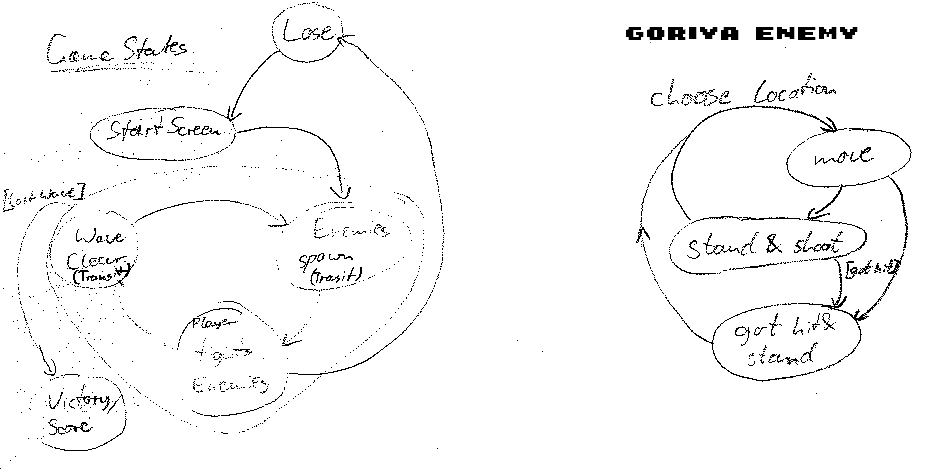 Game States
Lose
Start Screen
[Last Wave]
Wave
Clear
(Transit)
Enemies
spawn
(Transit)
Player
fights
Enemies
Victory/
Score
GORIYA ENEMY
choose location
move
stand & shoot
[got hit]
got hit &
stand